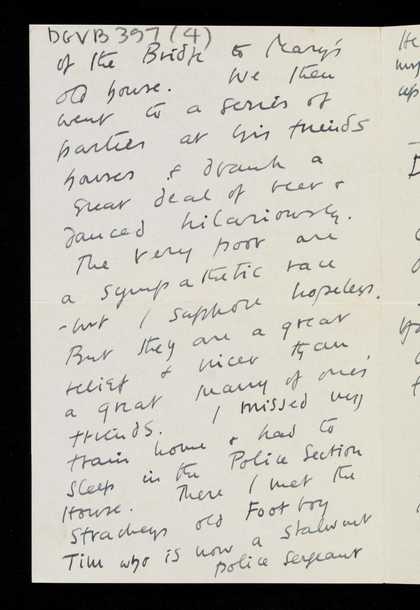 DGVB 397 (4)
of the Bridge to Mary's
old house. We then
went to a series of
parties at his friends
houses & drank a
great deal of beer &
danced hilariously.
The very poor are
a sympathetic race
- but I suppose hopeless.
But they are a great
relief & nicer than
a great many of ones
friends. I missed my
train home & had to
sleep in the Police Section
House. There I met the
Stracheys old Foot boy
Tim who is now a stalwart
police sergeant
He
my